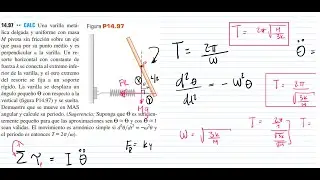 14.97 •• CALC Una varilla metá-
lica delgada y uniforme con masa
M pivota sin fricción sobre un eje
que pasa por su punto medio y es
perpendicular a la varilla. Un re-
sorte horizontal con constante de
fuerza k se conecta al extremo infe-
rior de la varilla, y el otro extremo
del resorte se fija a un soporte
rígido. La varilla se desplaza un
ángulo pequeño Θ con respecto a la
vertical (figura P14.97) y se suelta.
Demuestre que se mueve en MAS
angular y calcule su periodo. (Sugerencia: Suponga que Θ es suficiente-
mente pequeño para que las aproximaciones sen Θ ≈ Θ y cos Θ ≈ 1
sean válidas. El movimiento es armónico simple si d²θ/dt² = −ω²θ y
el periodo es entonces T = 2π/ω).
Figura P14.97
L/2
Mg
Σ τ = I θ̈
F = ky
T = 2π/ω
d²θ/dt² = −ω²θ
ω = √(3k/M)
T = 2π √(M/3k)
θ̈ =